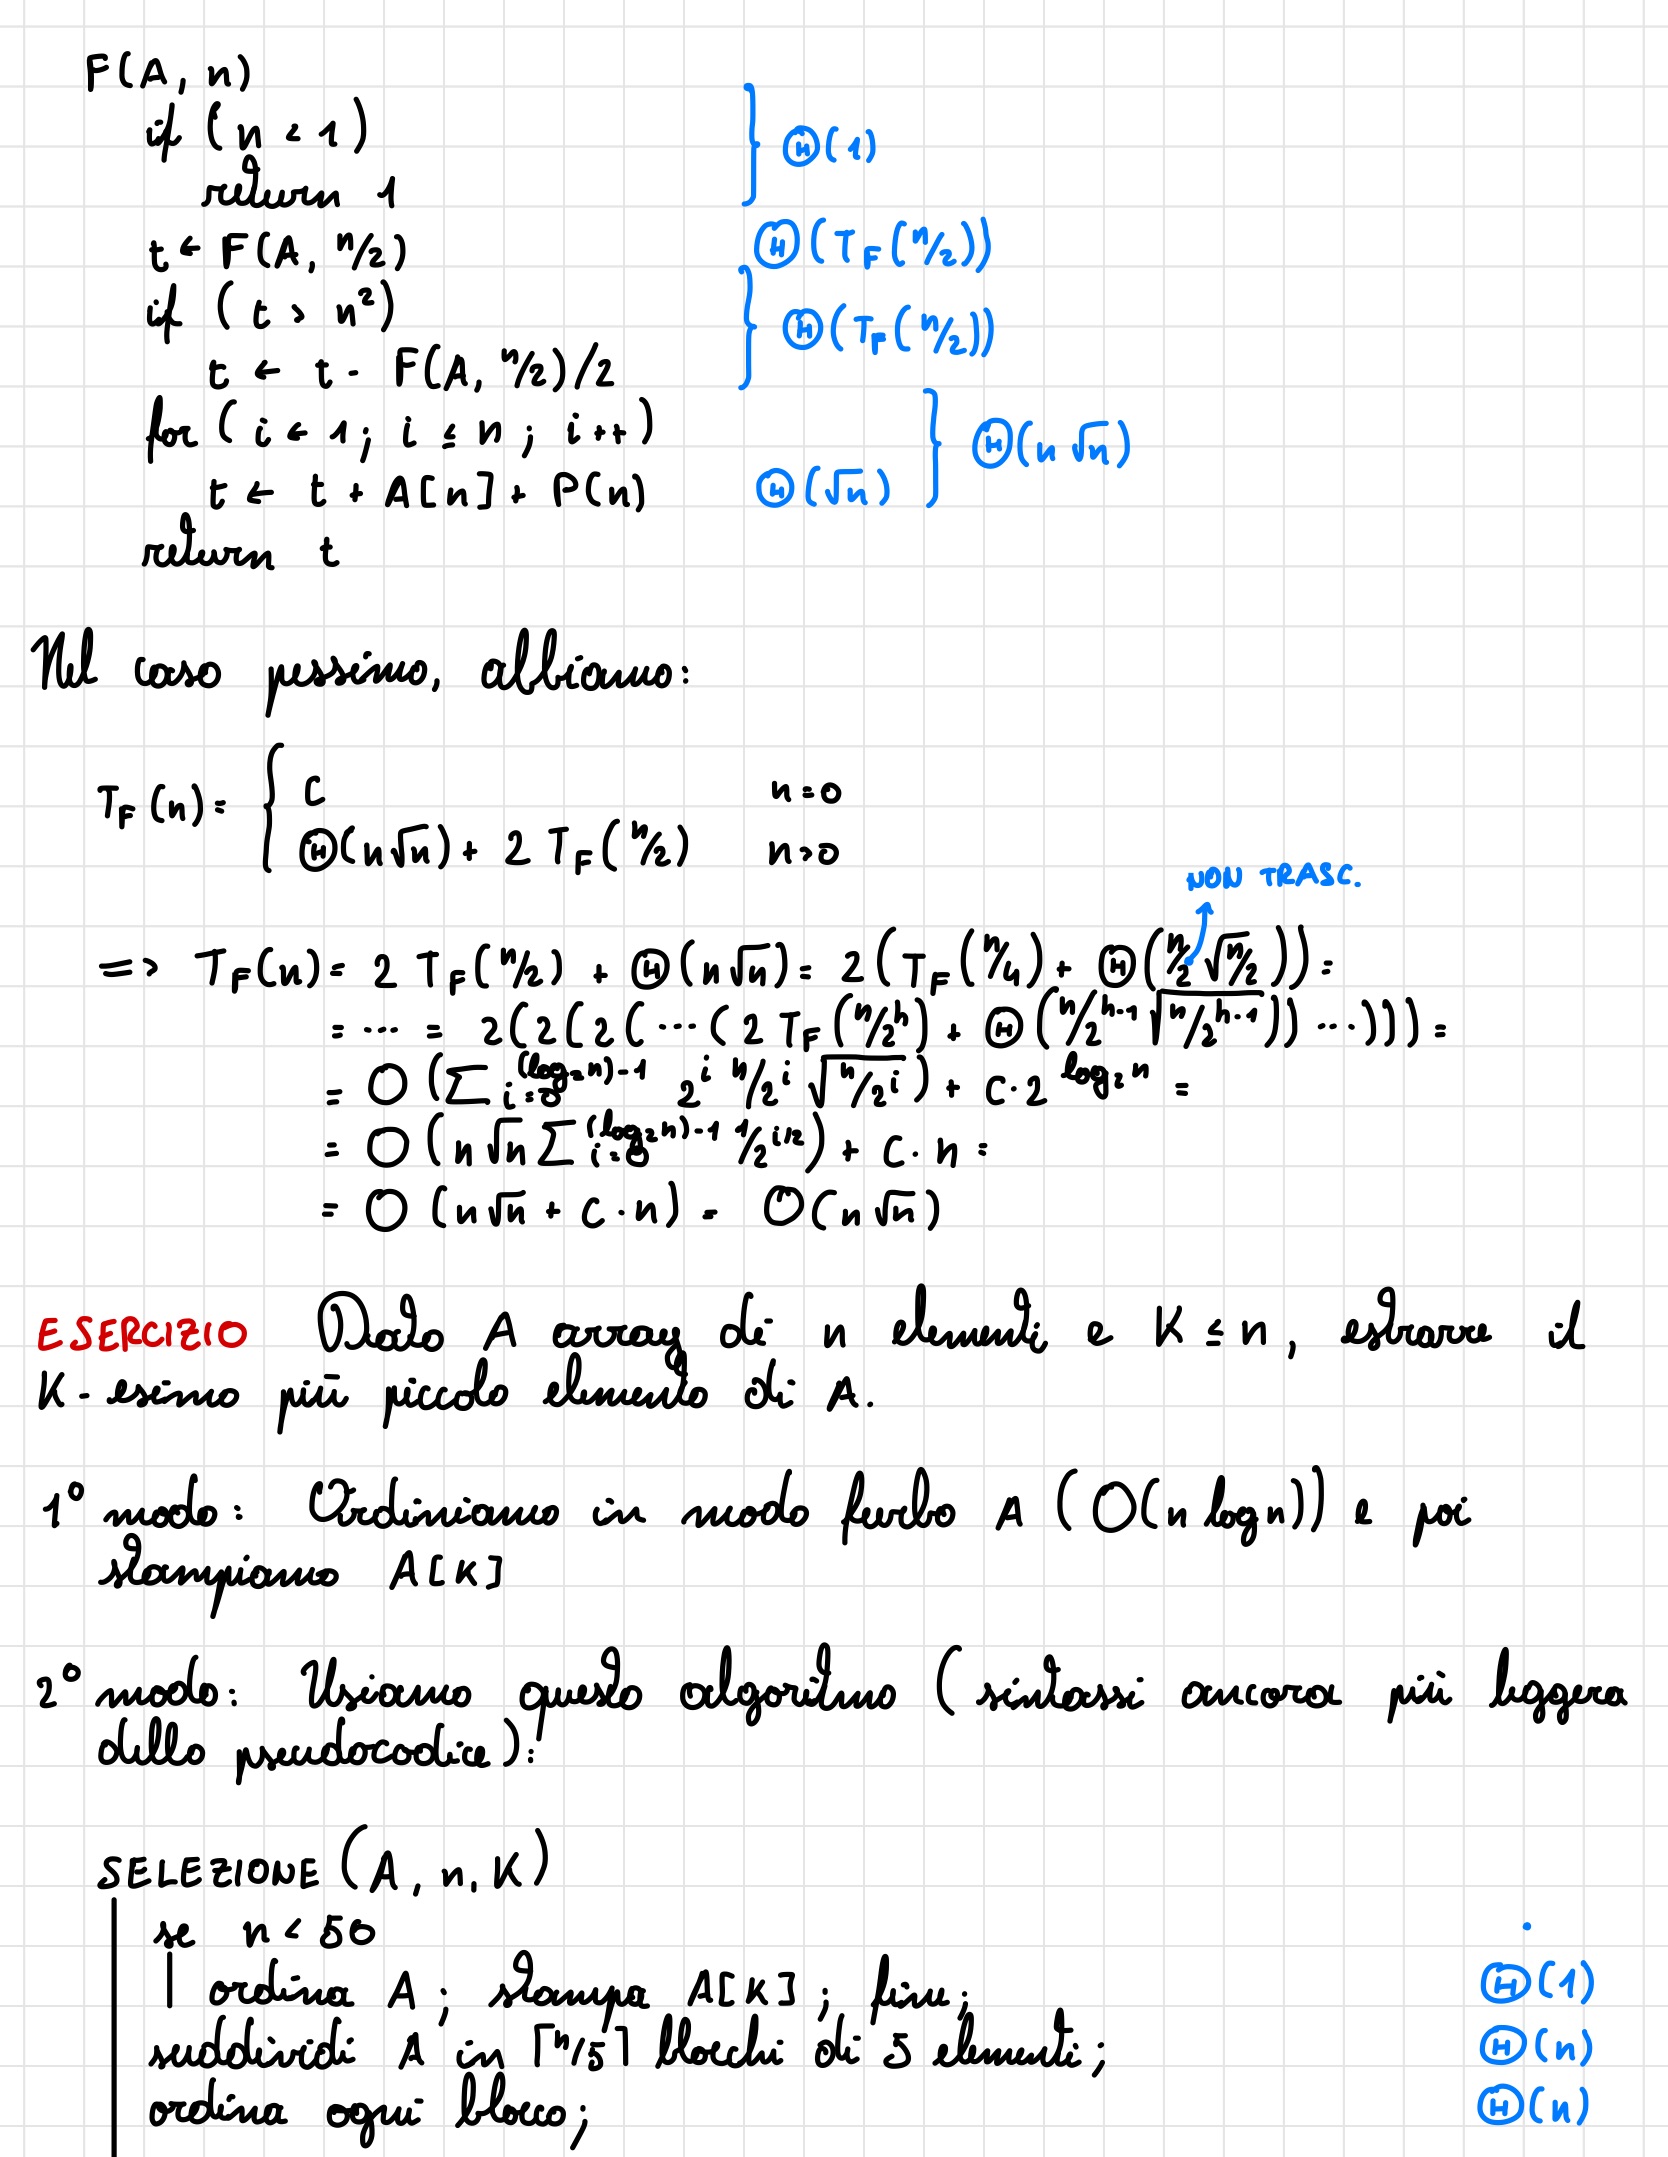 F(A, n)
if (n < 1) } Θ(1)
return 1
t ← F(A, n/2) Θ(T_F(n/2))
if (t > n²) } Θ(T_F(n/2))
t ← t - F(A, n/2)/2
for (i ← 1; i ≤ n; i++) } Θ(n√n)
t ← t + A[n] + P(n) Θ(√n)
return t
Nel caso pessimo, abbiamo:
T_F(n) = { c n=0
Θ(n√n) + 2 T_F(n/2) n>0
NON TRASC.
=> T_F(n) = 2 T_F(n/2) + Θ(n√n) = 2(T_F(n/4) + Θ(n/2 √(n/2))) =
= ... = 2(2(2(...(2 T_F(n/2^h) + Θ(n/2^(h-1) √(n/2^(h-1)))) ...))) =
= O(∑ i=0 (log₂n)-1 2^i n/2^i √(n/2^i)) + c·2^(log₂n) =
= O(n√n ∑ i=0 (log₂n)-1 1/2^(i/2)) + c·n =
= O(n√n + c·n) = O(n√n)
ESERCIZIO Dato A array di n elementi e K ≤ n, estrarre il
K-esimo più piccolo elemento di A.
1° modo: Ordiniamo in modo furbo A (O(n log n)) e poi
stampiamo A[K]
2° modo: Usiamo questo algoritmo (sintassi ancora più leggera
dello pseudocodice):
SELEZIONE (A, n, K)
se n < 50
ordina A; stampa A[K]; fine; Θ(1)
suddividi A in ⌈n/5⌉ blocchi di 5 elementi; Θ(n)
ordina ogni blocco; Θ(n)